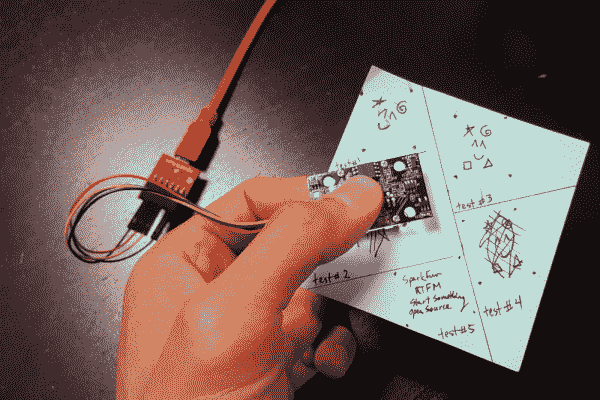 test #1
test #3
test # 2
SparkFun
RTFM
start something
open source
test #4
test #5